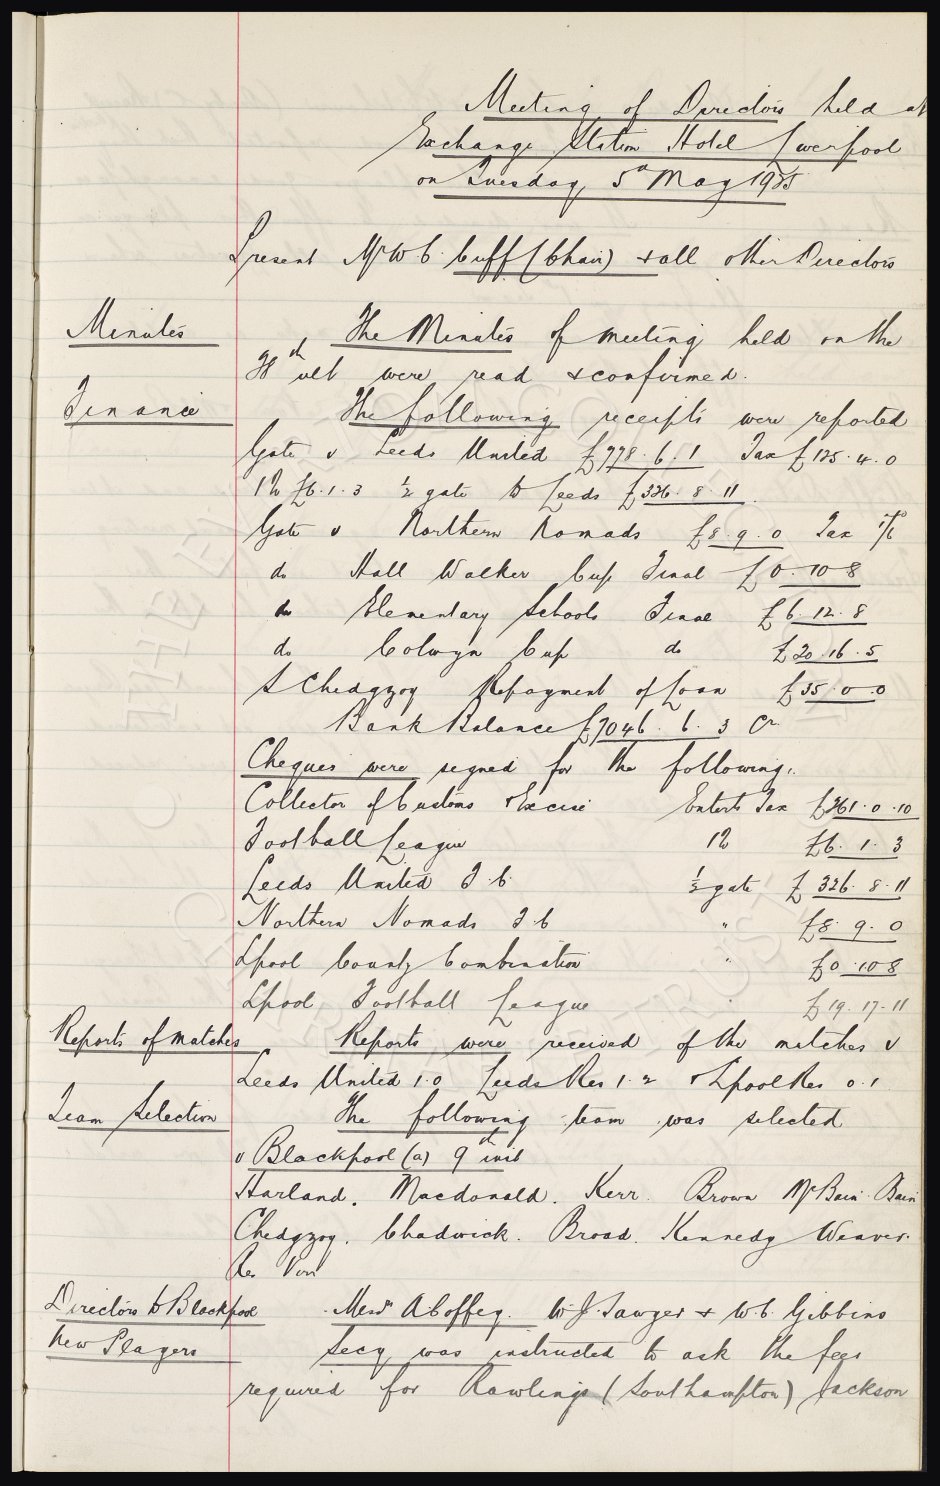 Meeting of Directors held at
Exchange Station Hotel Liverpool
on Tuesday, 5th May 1925
Present Mr W C Cuff (Chair) & all other Directors
Minutes The Minutes of meeting held on the
28th ult were read & confirmed.
Finance The following receipts were reported
Gate v Leeds United £778.6.1 Tax £125.4.0
1% £6.1.3 ½ gate to Leeds £326.8.11
Gate v Northern Nomads £8.9.0 Tax
do Hall Walker Cup Final £0.10.8
do Elementary Schools Final £6.12.8
do Colwyn Cup do £20.16.5
S Chedgzoy Repayment of Loan £35.0.0
Bank Balance £7046.6.3 Cr
Cheques were signed for the following:
Collector of Customs & Excise Enterts Tax £261.0.10
Football League 1% £6.1.3
Leeds United F.C. ½ gate £326.8.11
Northern Nomads F.C " £8.9.0
Lpool County Combination " £0.10.8
Lpool Football League " £19.17.11
Reports of matches Reports were received of the matches v
Leeds United 1.0 Leeds Res 1.2 & Lpool Res 0.1
Team Selection The following team was selected
v Blackpool (a) 9th inst
Harland. Macdonald. Kerr. Brown McBain. Bain
Chedgzoy. Chadwick. Broad. Kennedy Weaver.
Res Virr
Directors to Blackpool Messrs A Coffey. W.J. Sawyer & W C. Gibbins
New Players Secy was instructed to ask the fees
required for Rawlings (Southampton) Jackson